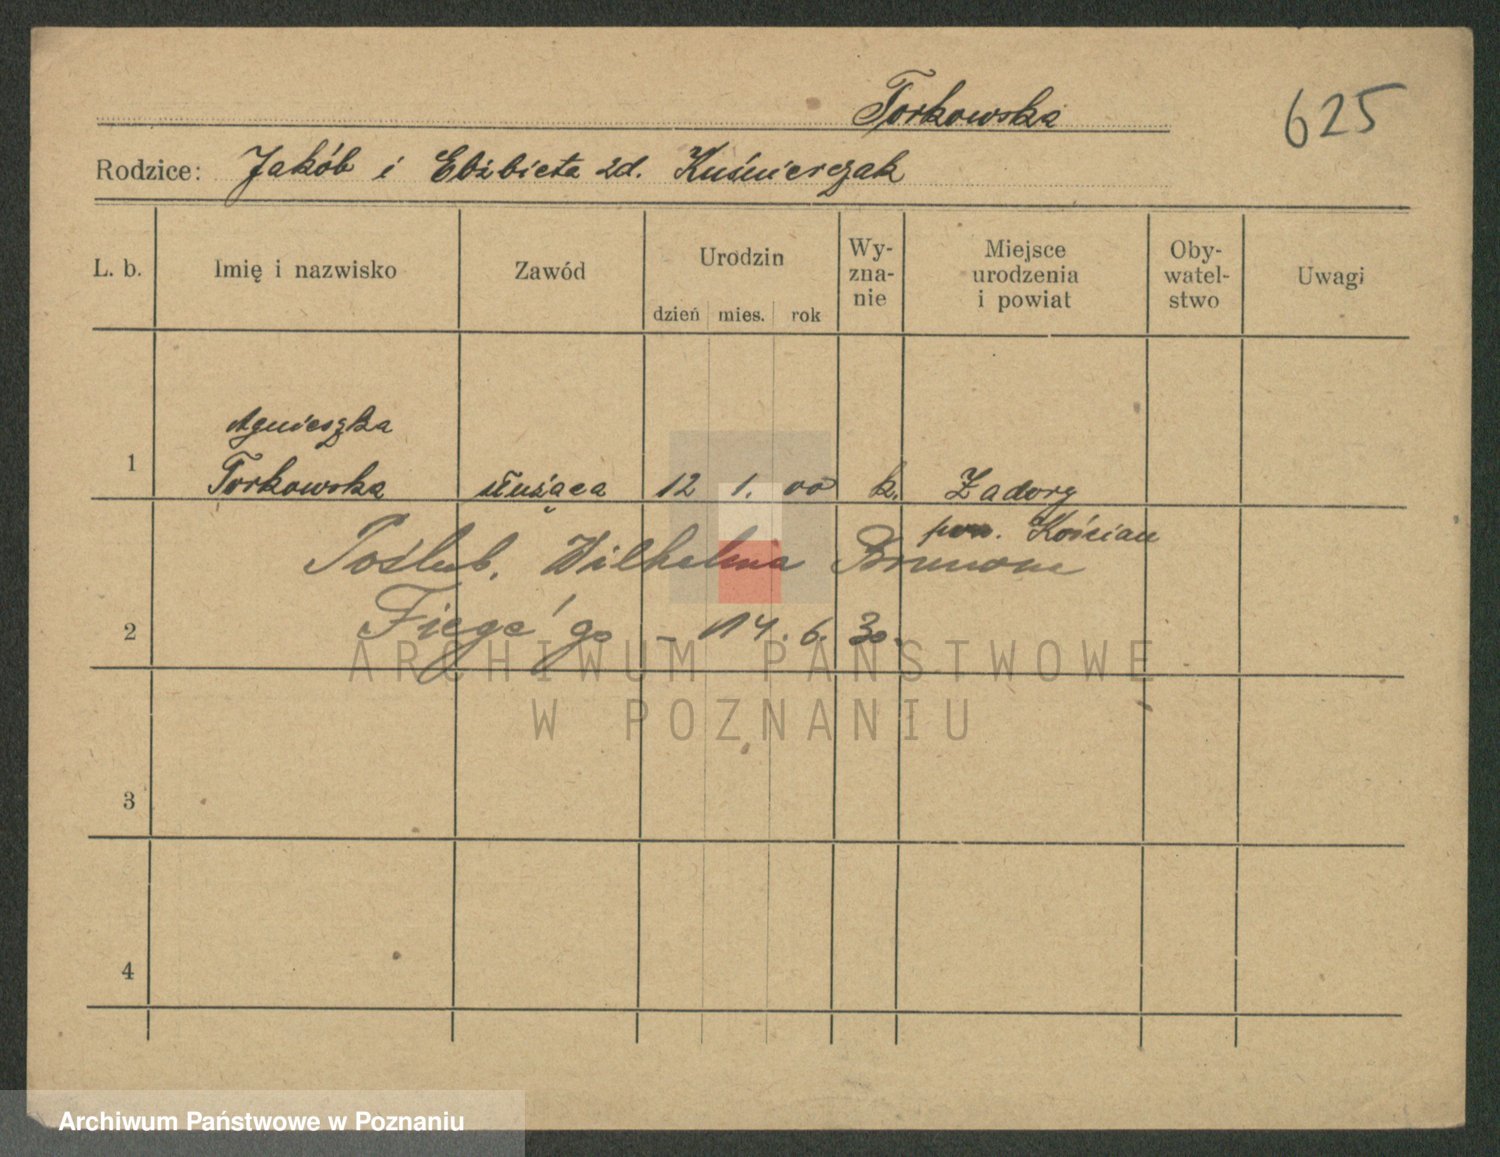 Torkowska
625
Rodzice: Jakób i Elżbieta zd. Kuśnierczak
L. b. Imię i nazwisko Zawód Urodzin dzień mies. rok Wy-zna-nie Miejsce urodzenia i powiat Oby-watel-stwo Uwagi
Agnieszka
1 Torkowska służąca 12 1. 00 k. Zadory
pow. Kościan
Poślub. Wilhelma Brunona
2 Fiege'go - 14. 6. 30.
ARCHIWUM PAŃSTWOWE
W POZNANIU
3
4
Archiwum Państwowe w Poznaniu